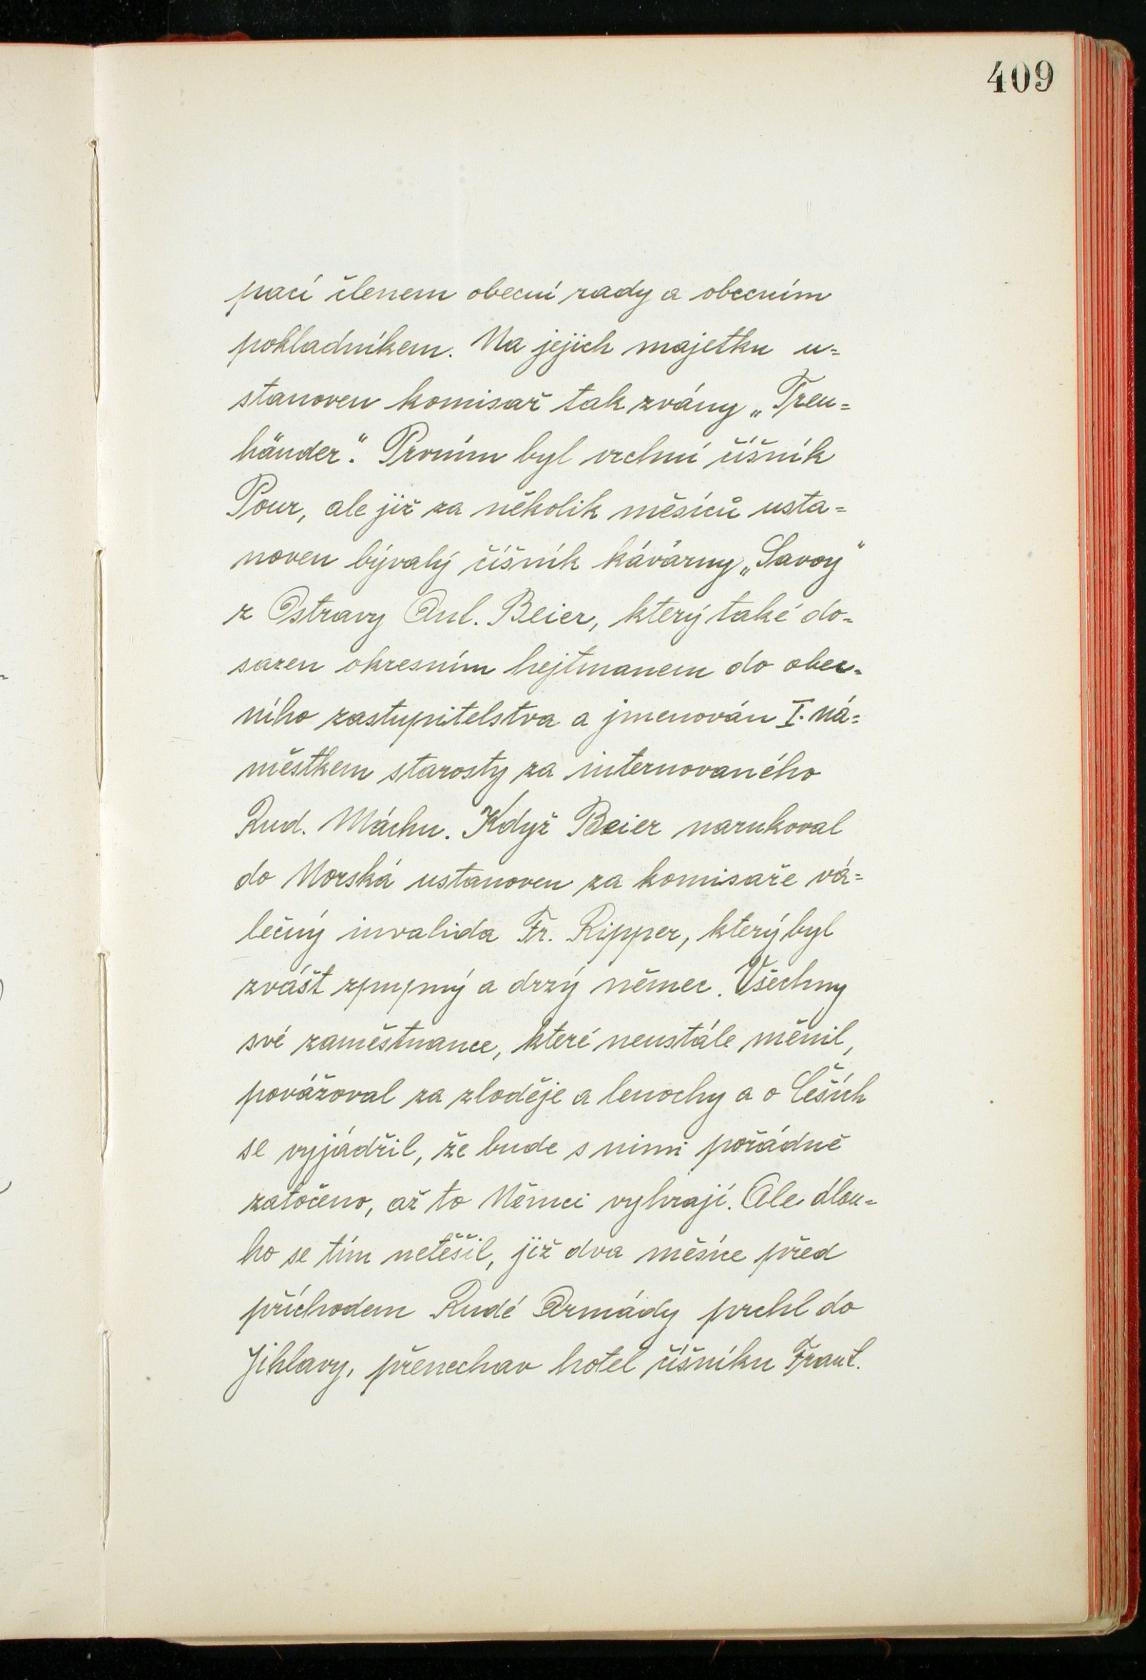 409
pací členem obecní rady a obecním
pokladníkem. Na jejich majetku u=
stanoven komisař tak zvány „Treu=
händer". Prvním byl vrchní číšník
Pour, ale již za několik měsíců usta=
noven bývalý číšník kávárny „Savoy"
z Ostravy Ant. Beier, který také do=
sazen okresním hejtmanem do obec=
ního zastupitelstva a jmenován I. ná=
městkem starosty za internovaného
Rud. Máchu. Když Beier narukoval
do Norská ustanoven za komisaře vá=
lečný invalida Fr. Ripper, který byl
zvášt zpupný a drzý němec. Všechny
své zaměstnance, které neustále měnil,
povážoval za zloděje a lenochy a o Češích
se vyjádřil, že bude s nimi pořádně
zatočeno, až to Němci vyhrají. Ale dlou=
ho se tím netěšil, již dva měsíce před
příchodem Rudé Armády prchl do
Jihlavy, přenechav hotel číšníku Frant.